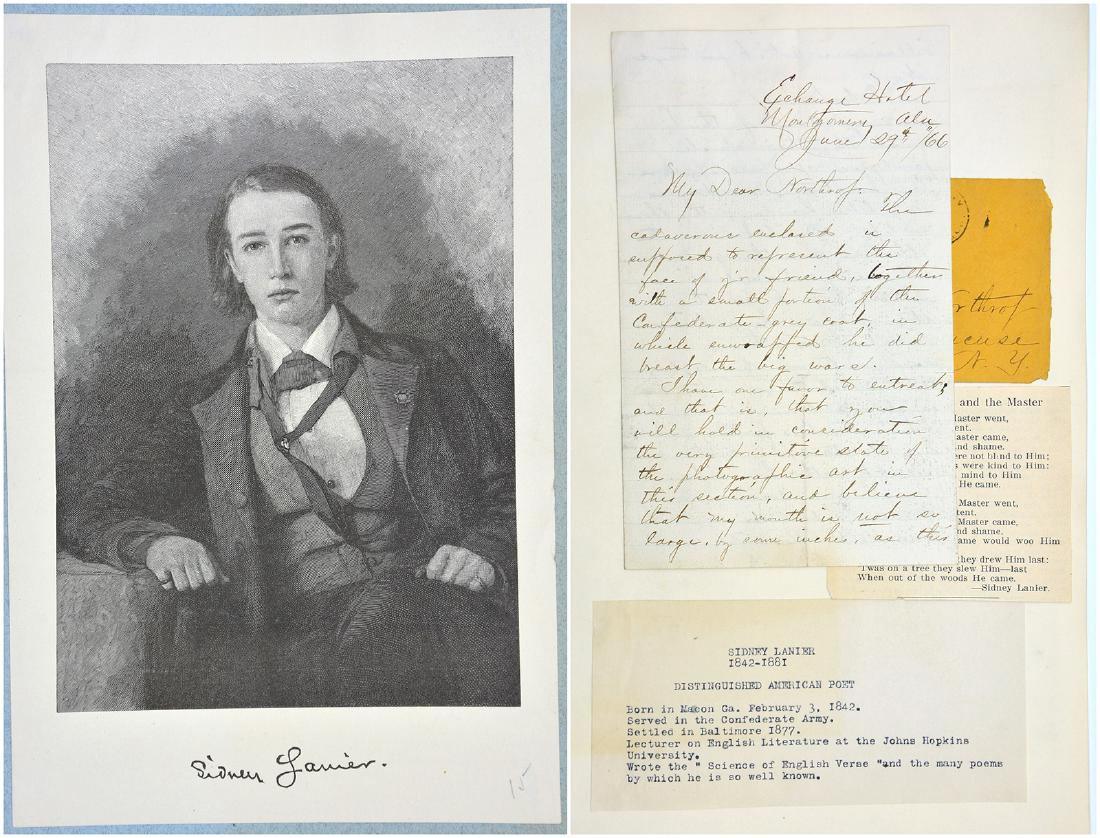 Sidney Lanier.
15
Exchange Hotel
Montgomery Ala
June 29th /66
My Dear Northrop.
The
cadaverous enclosed is
supposed to represent the
face of y'r friend, together
with a small portion of the
Confederate-grey coat, in
which enwrapped he did
breast the big wars.
I have one favor to entreat;
and that is, that you
will hold in consideration
the very primitive state of
the photographic art in
this section, and believe
that my mouth is not so
large, by some inches, as this
rthrop
cuse
N. Y.
and the Master
aster went,
ent.
aster came,
nd shame.
ere not blind to Him;
s were kind to Him:
mind to Him
He came.
Master went,
tent.
Master came,
nd shame.
ame would woo Him
they drew Him last:
'Twas on a tree they slew Him—last
When out of the woods He came.
—Sidney Lanier.
SIDNEY LANIER
1842-1881
DISTINGUISHED AMERICAN POET
Born in Macon Ga. February 3, 1842.
Served in the Confederate Army.
Settled in Baltimore 1877.
Lecturer on English Literature at the Johns Hopkins
University.
Wrote the " Science of English Verse "and the many poems
by which he is so well known.